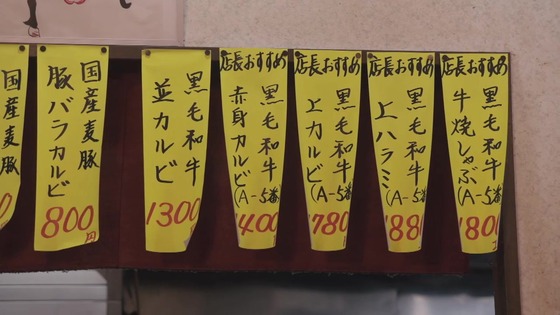 国産麦豚
国産麦豚
豚バラカルビ
800円
黒毛和牛
並カルビ
1300
店長おすすめ
黒毛和牛
赤身カルビ(A-5番
1400
店長おすすめ
黒毛和牛
上カルビ(A-5番
1780
店長おすすめ
黒毛和牛
上ハラミ(A-5番
1880
店長おすすめ
黒毛和牛
牛焼しゃぶ(A-5番
1800